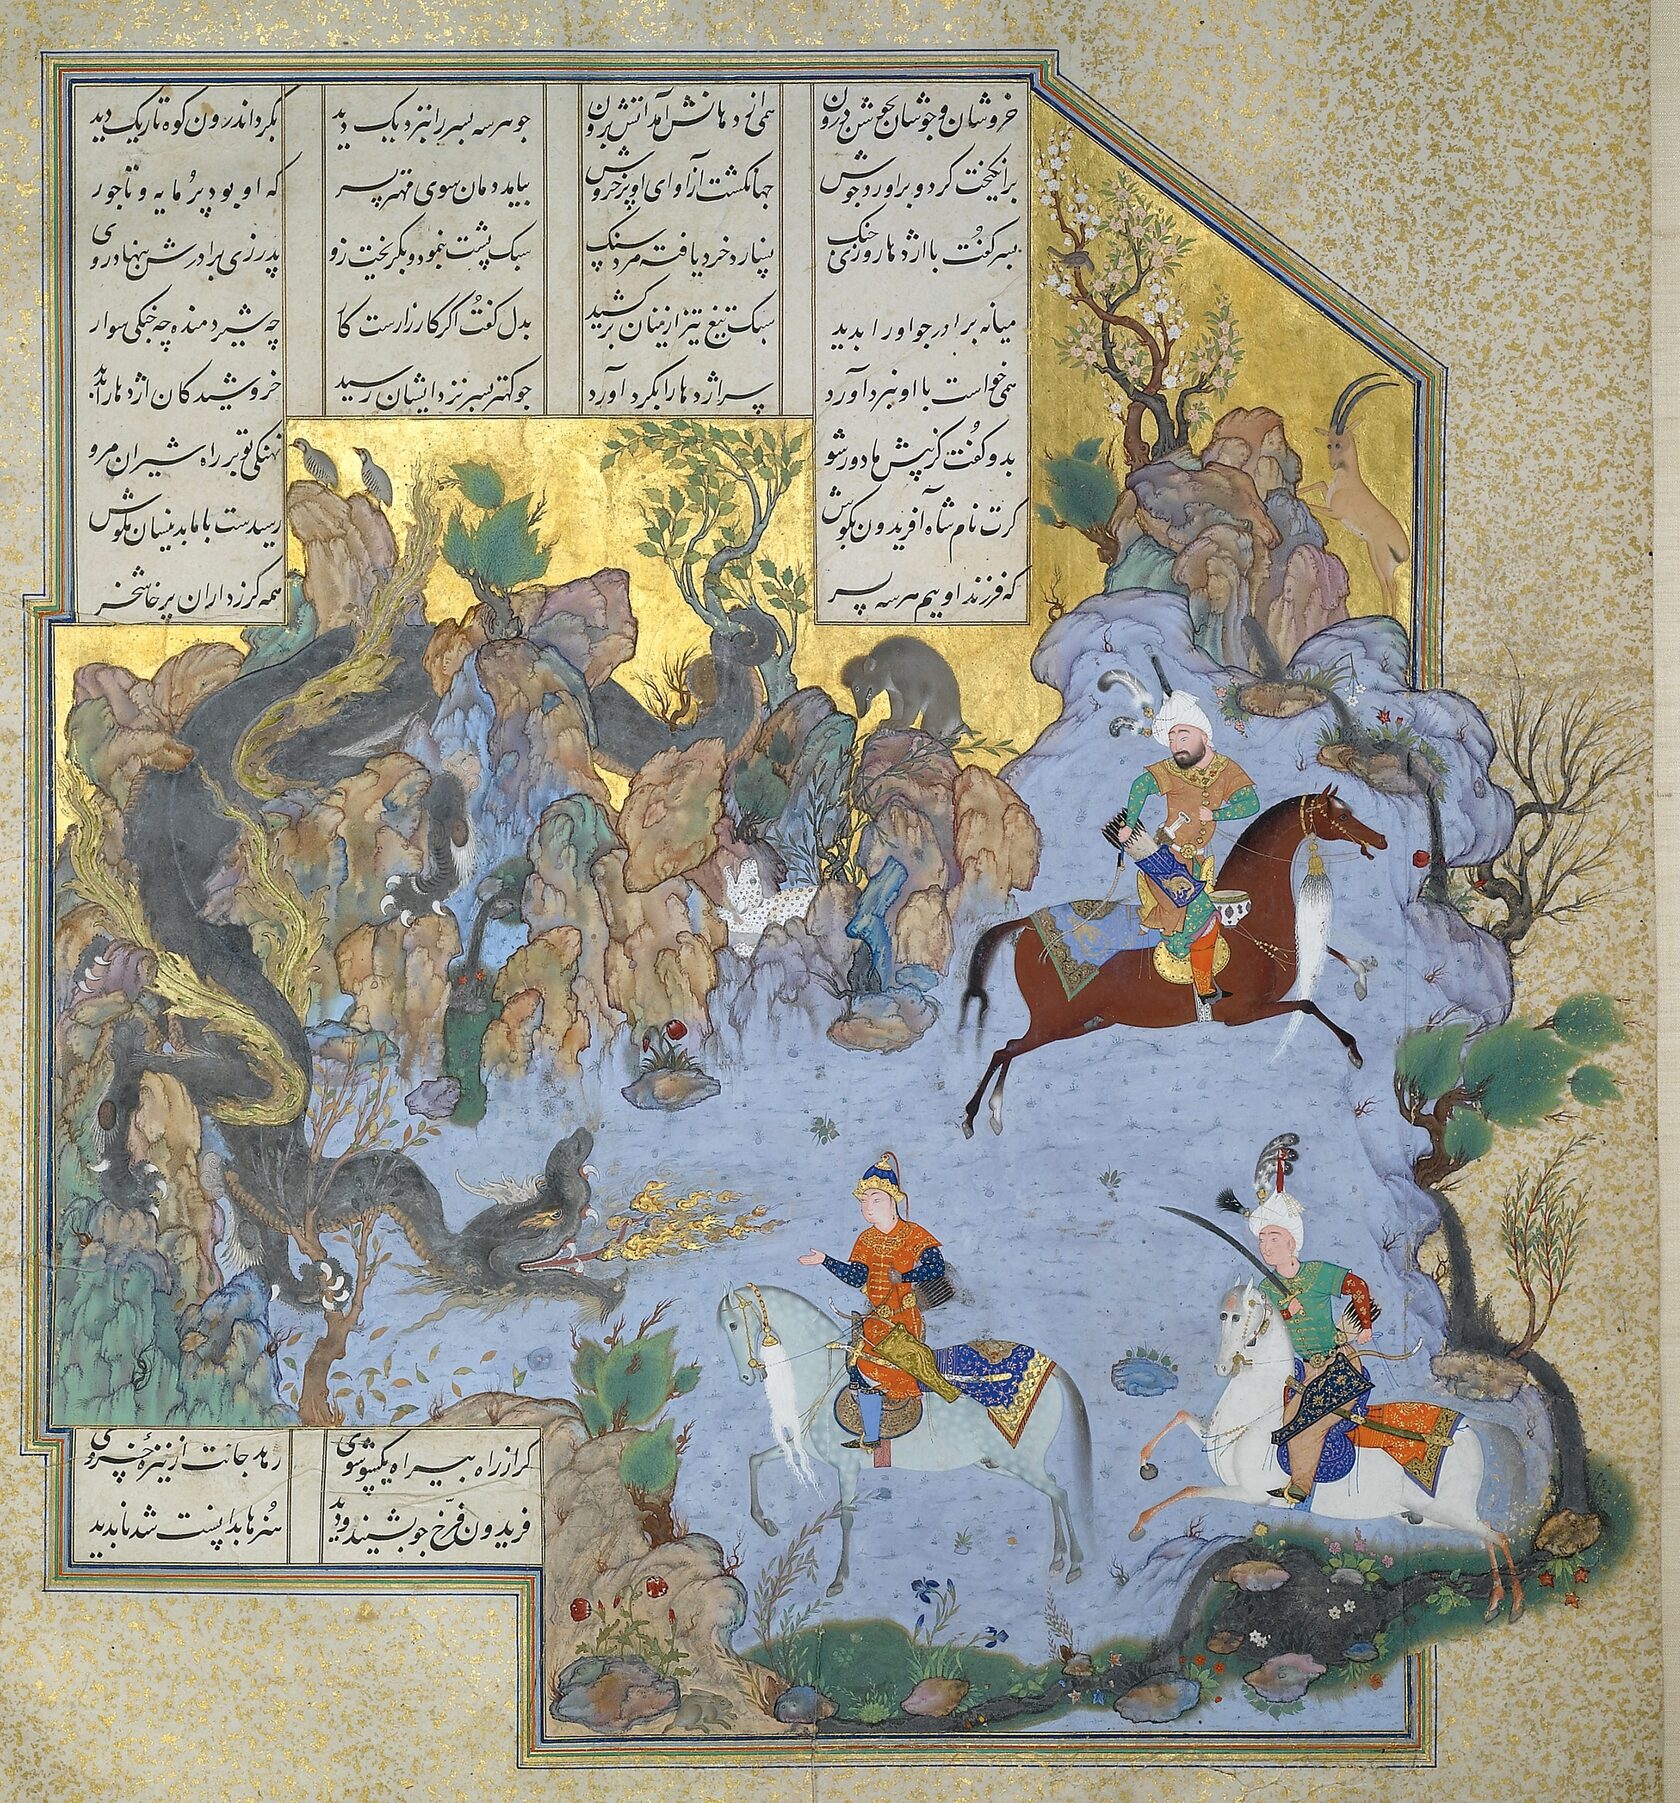 خروشان و جوشان بجوش اندرون همی از دهانش آمد آتش برون چو هر سه پسر را بنزدیک دید بگرد اندرون کوه تاریک دید
برانگیخت گرد و برآورد جوش جهان گشت از آوای او پر خروش بیامد دمان سوی مهتر پسر که او بود پرمایه و تاجور
پسر گفت با اژدها روز جنگ خرد یافته مرد سنگ سبک پشت بنمود و بگریخت زوی پدر زی برادرش بنهاد روی
میانه برادر چو او را بدید سبک تیغ تیز از میان برکشید بدل گفت اگر کارزارست کار چه شیر دمنده چه جنگی سوار
همی خواست با او نبرد آورد سر اژدها را بگرد آورد چو کهتر پسر نزد ایشان رسید خروشید کان اژدها را بدید
بدو گفت کز پیش ما دور شو نهنگی تو بر راه شیران مرو
گرت نام شاه آفریدون بگوش رسیدست با ما بدینسان مکوش
که فرزند اوییم هر سه پسر همه گرزداران پرخاشخر
گر از راه بیراه یکسو شوی رهد جانت از نیزه خسروی
فریدون فرّخ چو بشنید و دید هنرها بدانست شد ناپدید